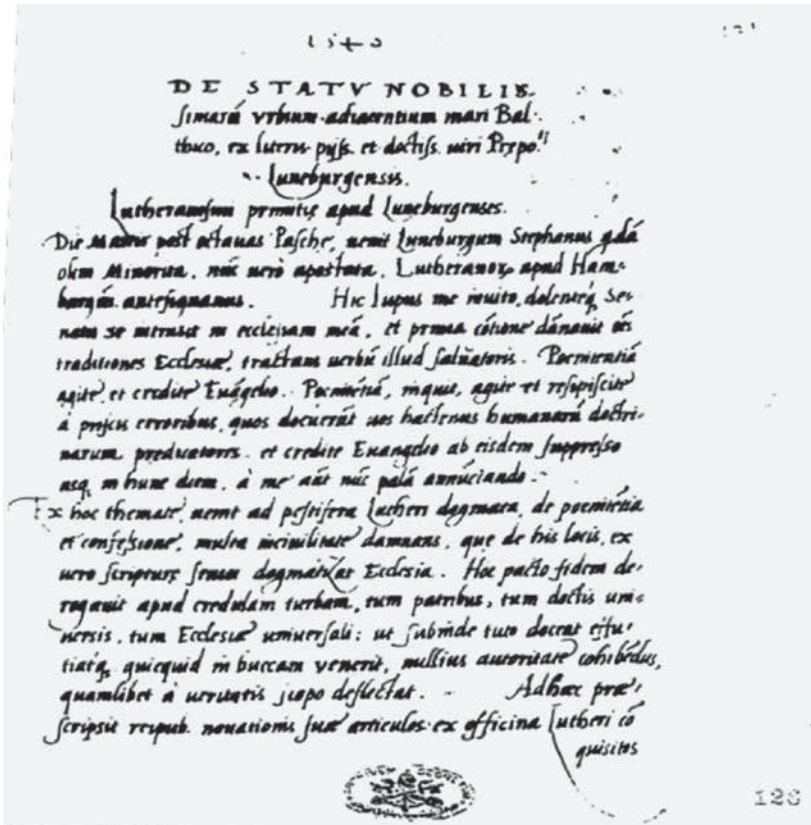 1540
DE STATV NOBILIS
simarũ vrbium adiacentium mari Bal-
thico, ex literis pijss. et doctiss. uiri Prepo.ti
Luneburgensis.
Lutheranismi primitię apud Luneburgenses.
Die Martis post octauas Paschę, uenit Luneburgum Stephanus qdã
olim Minorita, nũc uerò apostata, Lutheranor. apud Ham-
burgũ antesignanus. Hic lupus me inuito, dolenteq. Se-
natu se intrusit in ecclesiam meã, et prima cõtione dãnauit oẽs
traditiones Ecclesiæ, tractans uerbũ illud saluatoris. Poenitentiã
agite, et credite Euãgelio. Poenitẽtiã, inquit, agite et resipiscite
à priscis erroribus, quos docuerũt uos hactenus humanarũ doctri-
narum predicatores. et credite Euangelio ab eisdem suppresso
usq. in hunc diem, à me aũt nũc palã annũciando.
Ex hoc themate uenit ad pestifera Lutheri dogmata, de poenitẽtia
et confessione, multa inciuilitate damnans, que de his locis, ex
uero scripturę sensu dogmatizat Ecclesia. Hoc pacto fidem de-
rogauit apud credulam turbam, tum patribus, tum doctis uni-
uersis, tum Ecclesiæ uniuersali: ut subinde tuto doceat effu-
tiatq. quicquid in buccam venerit, nullius autoritate cohibẽdus,
quamlibet à ueritatis scopo deflectat. Adhæc præ-
scripsit reipub. nouationis suæ articulos ex officina Lutheri cõ
quisitos